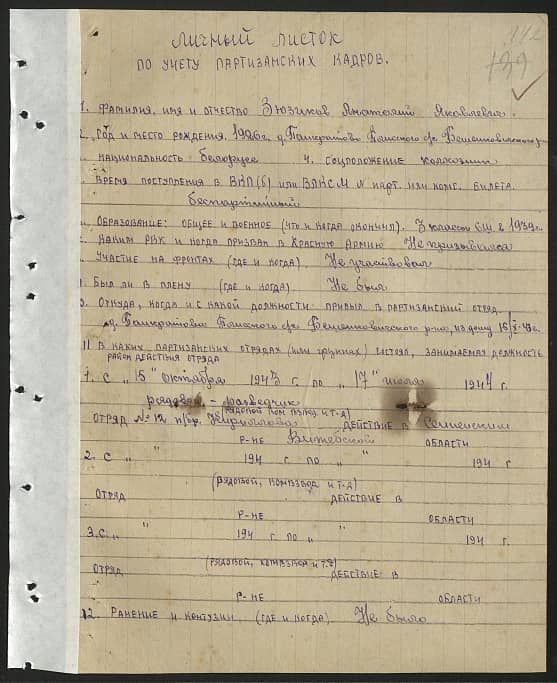 Личный листок
по учету партизанских кадров.
1. Фамилия, имя и отчество Зюзиков Анатолий Яковлевич.
2. Год и место рождения. 1926 г. д. Панкратово
национальность белорусс 4. Соцположение колхозник
Время поступления в ВКП(б) или ВЛКСМ N парт. или комс. билета.
беспартийный
Образование: общее и военное (что и когда окончил). 3 класса в 1939 г.
Каким РВК и когда призван в Красную Армию Не призывался
Участие на фронтах (где и когда). Не участвовал
Был ли в плену (где и когда). Не был
Откуда, когда и с какой должности прибыл в партизанский отряд.
д. Панкратово Бешенковичского р-на, из дому 15/X-43 г.
11 В каких партизанских отрядах (или группах) состоял, занимаемая должность
район действия отряда
1. с „15" октября 1943 г. по „17" июля 1944 г.
рядовой - разведчик
(рядовой, ком. взвод и т-д)
отряд №12 п/бр. Кириллова действие в Сенненским
р-не Витебской области
2. с „ " 194 г. по „ " 194 г
(рядовой, комвзвода и т-д)
отряд действие в
р-не области
3. с „ " 194 г. по „ " 194 г.
(рядовой, комвзвода и т.д)
отряд действие в
р-не области
12. Ранение и контузии, (где и когда). Не было